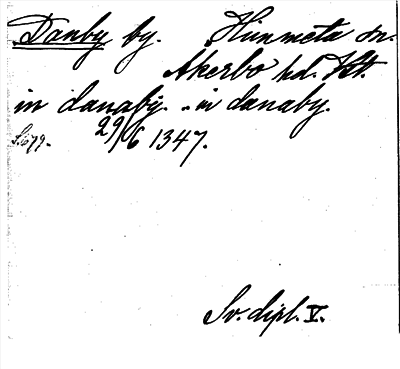 Danby by. Himmeta sn.
Åkerbo hd. Vst.
in danaby. - in danaby.
S. 679. 29/6 1347.
Sv. dipl. V.